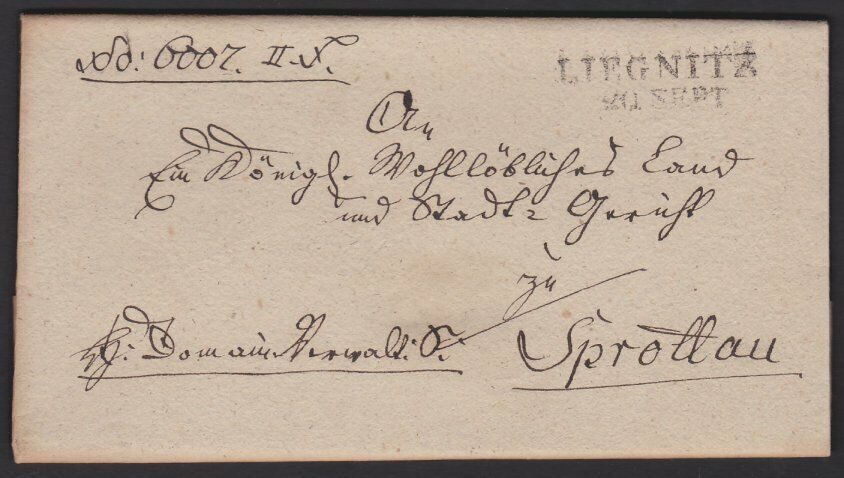 No: 6007. II. A.
LIEGNITZ
20 SEPT
An
Ein Königl. Wohllöbliches Land
und Stadt- Gericht
zu
Domain Verwalt: S.
Sprottau